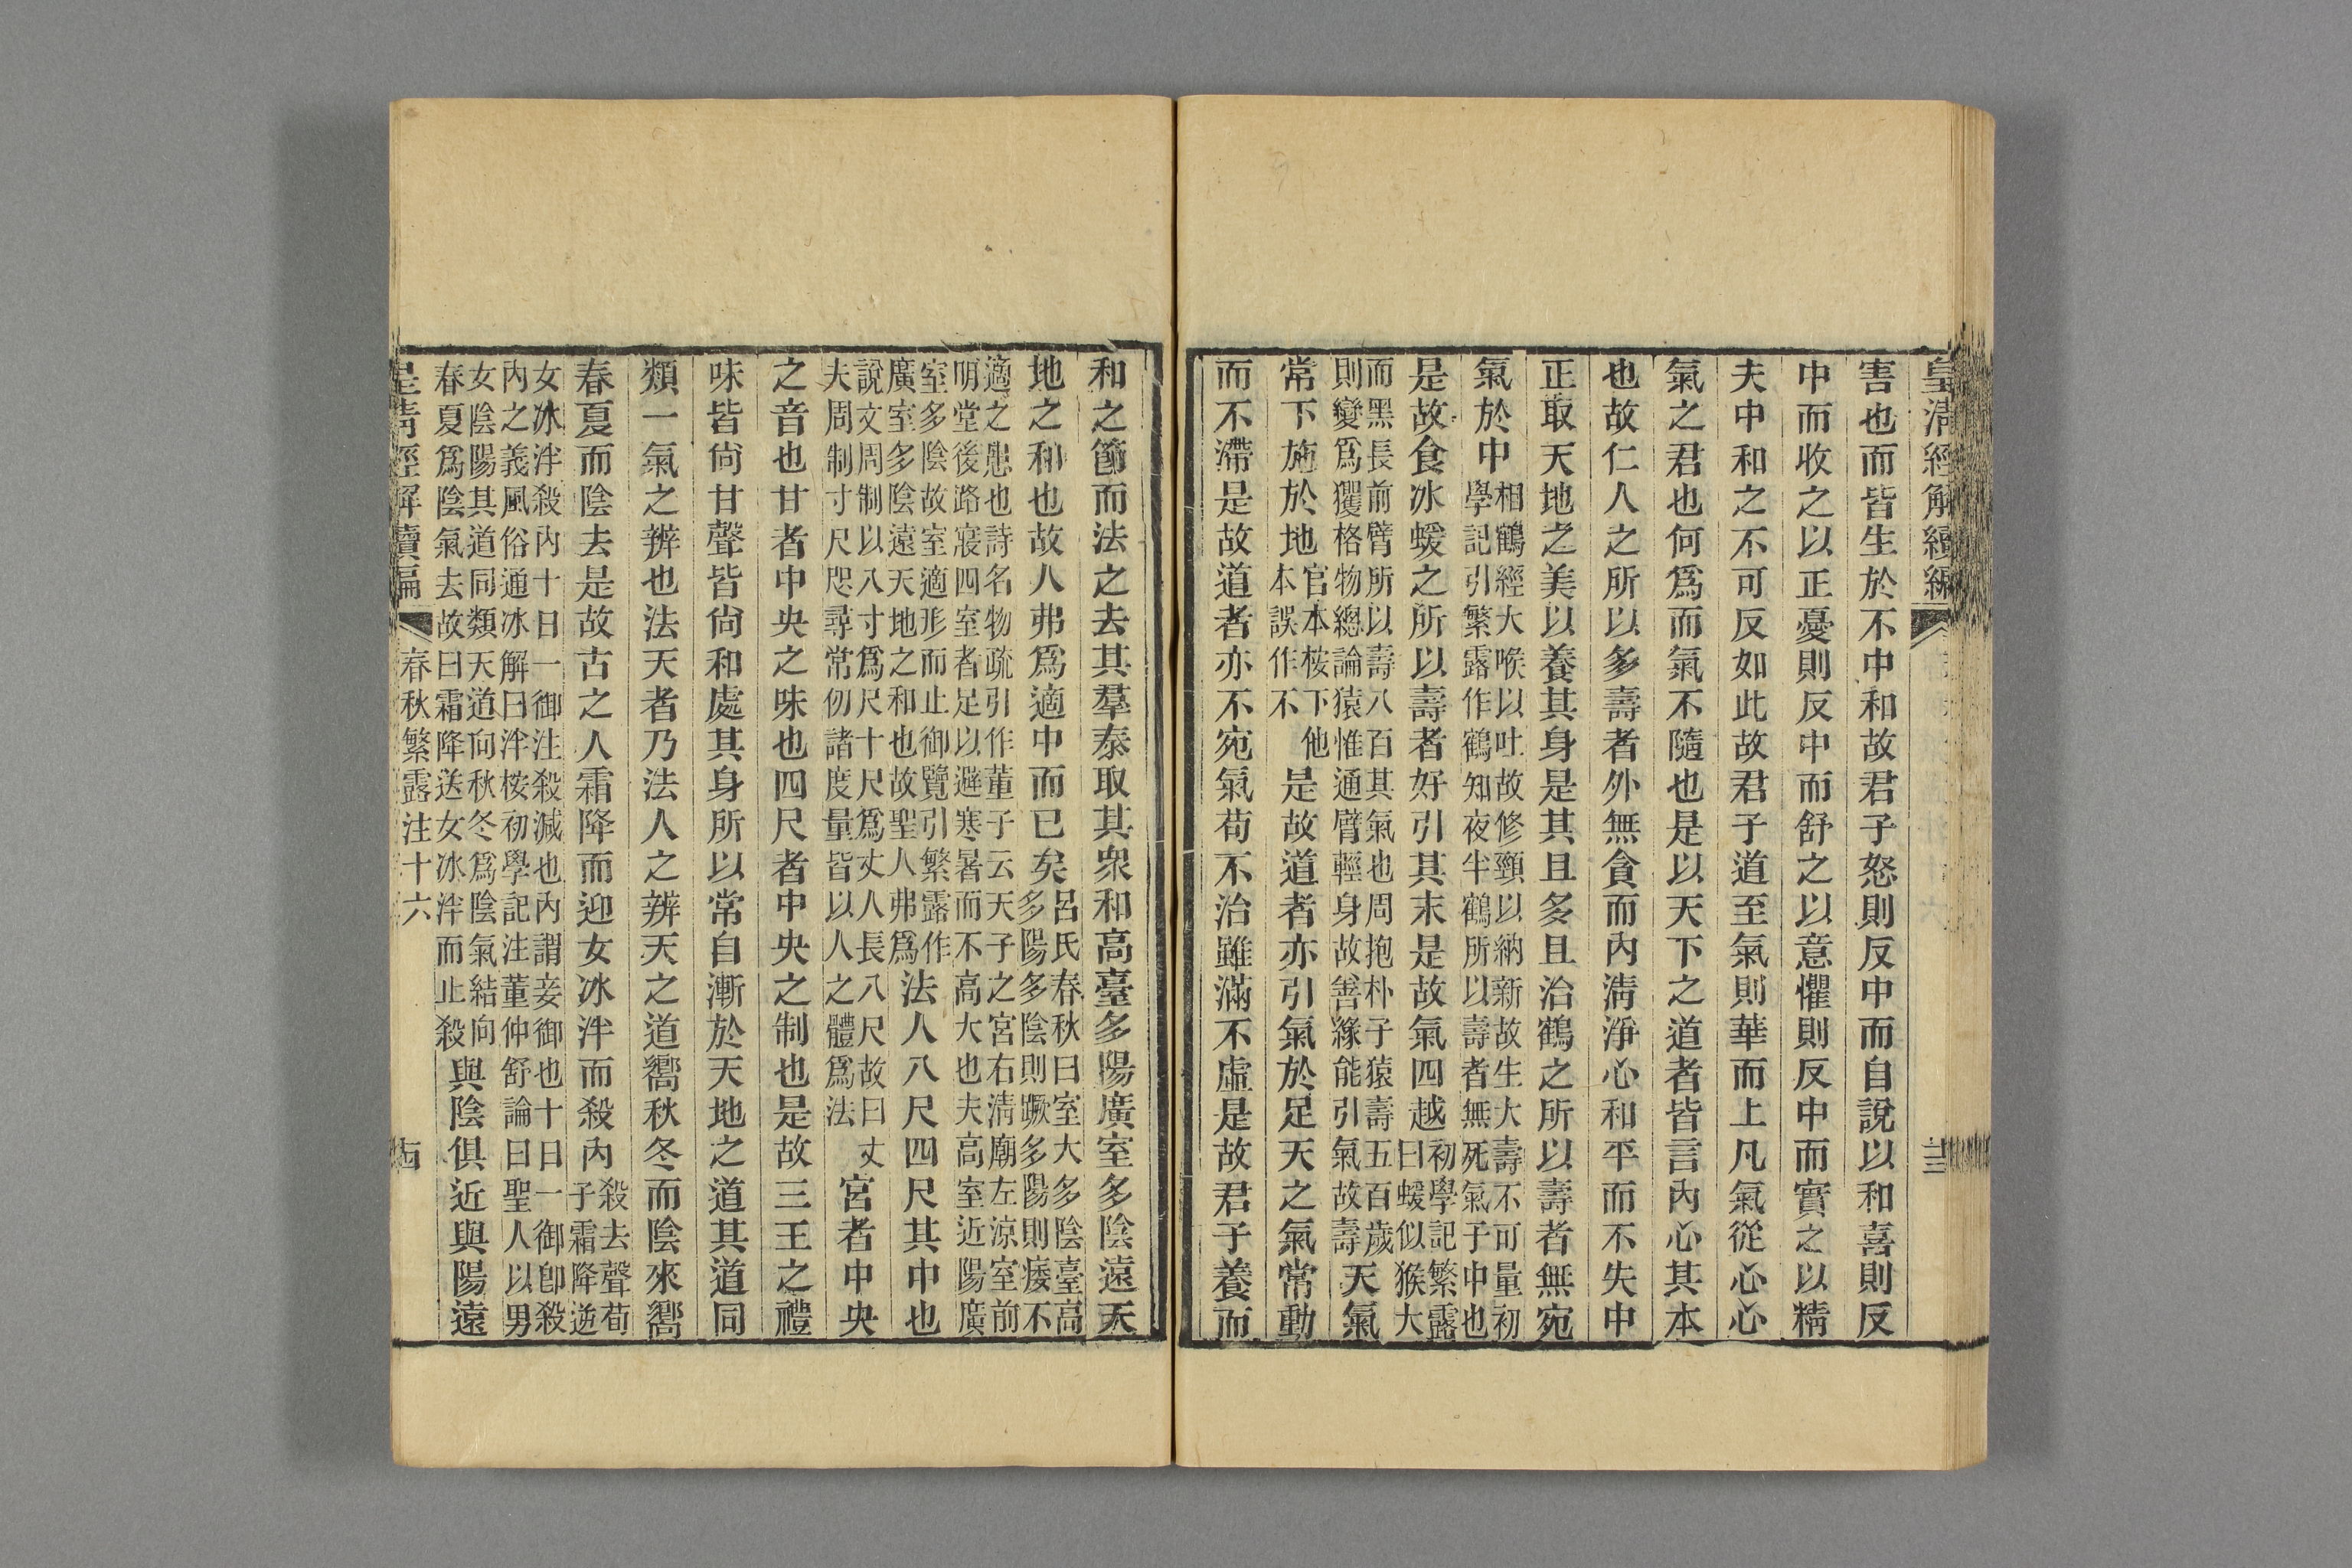 皇清經解續編
害也而皆生於不中和故君子怒則反中而自說以和喜則反
中而收之以正憂則反中而舒之以意懼則反中而實之以精
夫中和之不可反如此故君子道至氣則華而上凡氣從心心
氣之君也何爲而氣不隨也是以天下之道者皆言內心其本
也故仁人之所以多壽者外無貪而內淸淨心和平而不失中
正取天地之美以養其身是其且多且治鶴之所以壽者無宛
氣於中
相鶴經大喉以吐故修頸以納新故生大壽不可量初
學記引繁露作鶴知夜半鶴所以壽者無死氣于中也
是故食冰蝯之所以壽者好引其末是故氣四越
初學記繁露
曰蝯似猴大
而黑長前臂所以壽八百其氣也周抱朴子猿壽五百歲
則變爲玃格物總論猿惟通臂輕身故善緣能引氣故壽
天氣
常下施於地
官本桉下他
本誤作不
是故道者亦引氣於足天之氣常動
而不滯是故道者亦不宛氣苟不治雖滿不虛是故君子養而
和之節而法之去其羣泰取其衆和高臺多陽廣室多陰遠天
地之和也故人弗爲適中而已矣
呂氏春秋曰室大多陰臺高
多陽多陰則蹶多陽則痿不
適之患也詩名物疏引作董子云天子之宮右淸廟左涼室前
明堂後路寢四室者足以避寒暑而不高大也夫高室近陽廣
室多陰故室適形而止御覽引繁露作
廣室多陰遠天地之和也故聖人弗爲
法人八尺四尺其中也
說文周制以八寸爲尺十尺爲丈人長八尺故曰丈
夫周制寸尺咫尋常仞諸度量皆以人之體爲法
宮者中央
之音也甘者中央之味也四尺者中央之制也是故三王之禮
味皆尙甘聲皆尙和處其身所以常自漸於天地之道其道同
類一氣之辨也法天者乃法人之辨天之道嚮秋冬而陰來嚮
春夏而陰去是故古之人霜降而迎女冰泮而殺內
殺去聲荀
子霜降逆
女冰泮殺內十日一御注殺減也內謂妾御也十日一御卽殺
內之義風俗通冰解曰泮桉初學記注董仲舒論曰聖人以男
女陰陽其道同類天道向秋冬爲陰氣結向
春夏爲陰氣去故曰霜降送女冰泮而止殺
與陰俱近與陽遠
皇清經解續編
春秋繁露注十六